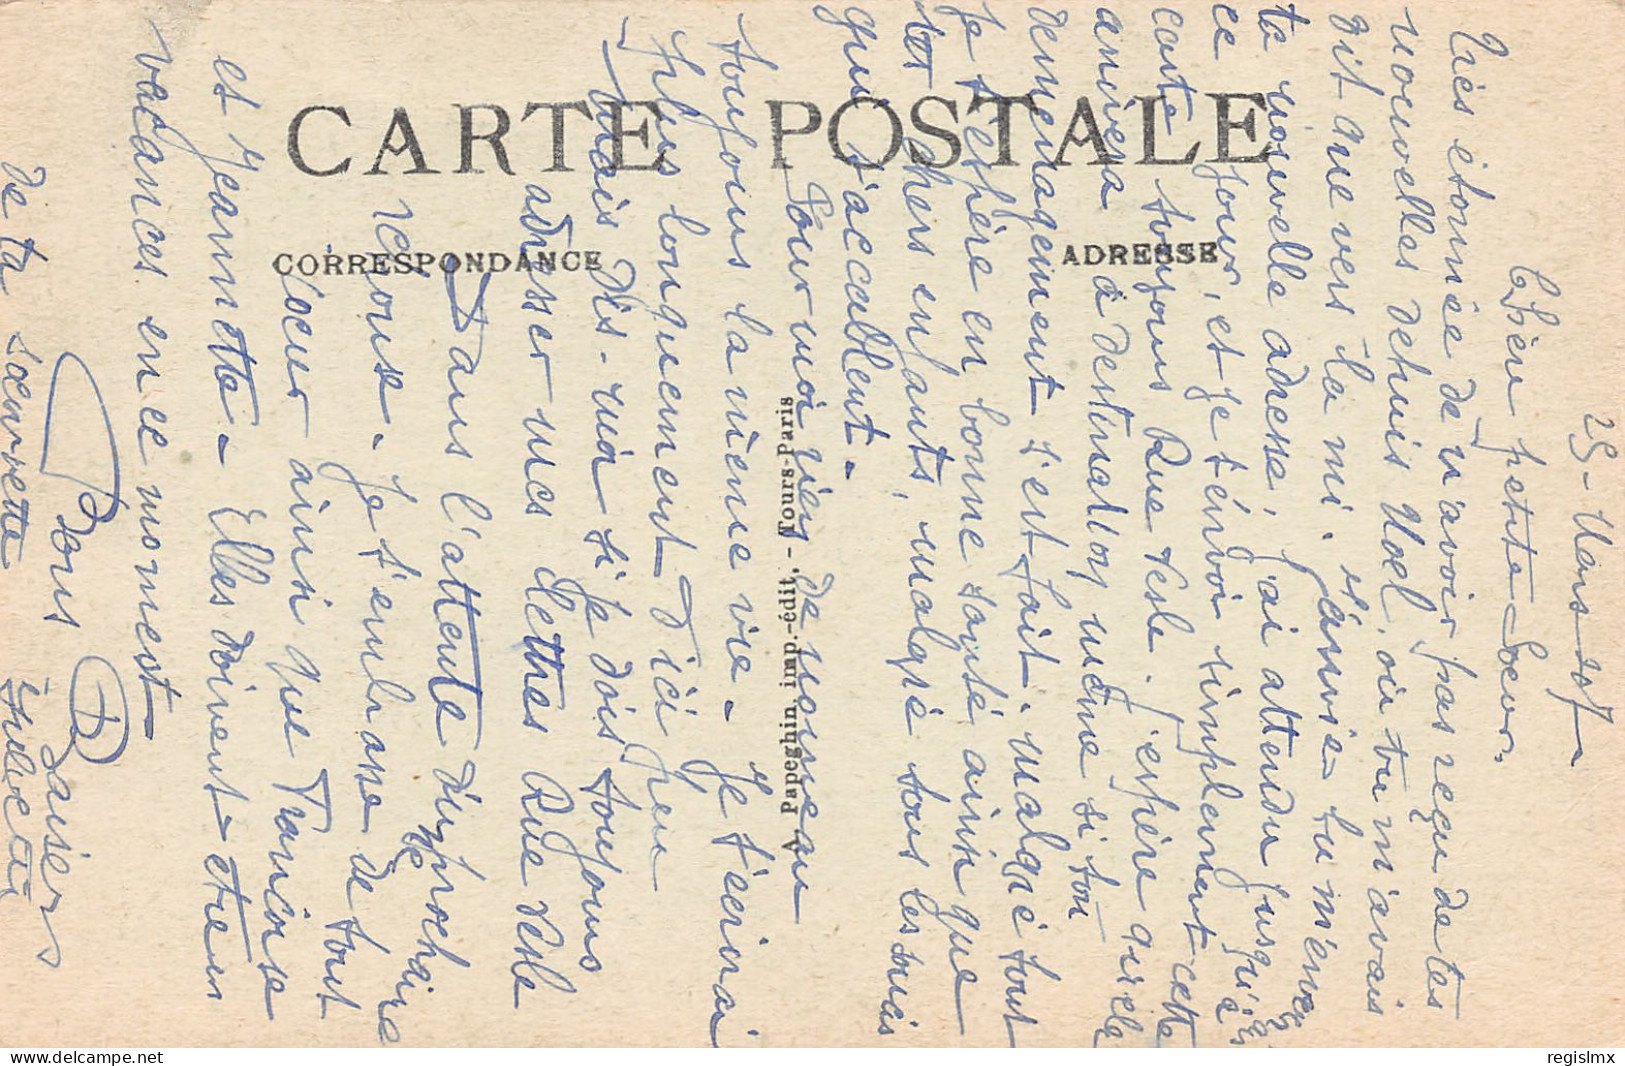 CARTE POSTALE
CORRESPONDANCE
ADRESSE
Papeghin imp.-édit. - Tours-Paris
25 - Mars
Chère petite Soeur,
Très étonnée de n'avoir pas reçu de tes
nouvelles depuis Noël, où tu m'avais
dit que vers la mi. Janvier tu m'enverrais
ta nouvelle adresse, j'ai attendu jusqu'à
ce jour, et je t'envoi simplement cette
carte toujours Rue Vesle. j'espère qu'elle
arrivera à destination même si ton
demenagement s'est fait. malgré tout
Je t'espère en bonne santé ainsi que
tes chers enfants, malgré tous les soucis
qui t'accablent.
Pour moi rien de nouveau
toujours la même vie. Je t'ecrirai
plus longuement d'ici peu
mais dis-moi si je dois toujours
adresser mes lettres Rue Vesle
Dans l'attente d'une prochaine
réponse. Je t'embrasse de tout
Coeur ainsi que Françoise
et Jeannette. Elles doivent être en
vacances en ce moment
Bons Baisers
de ta soeurette
regislmx